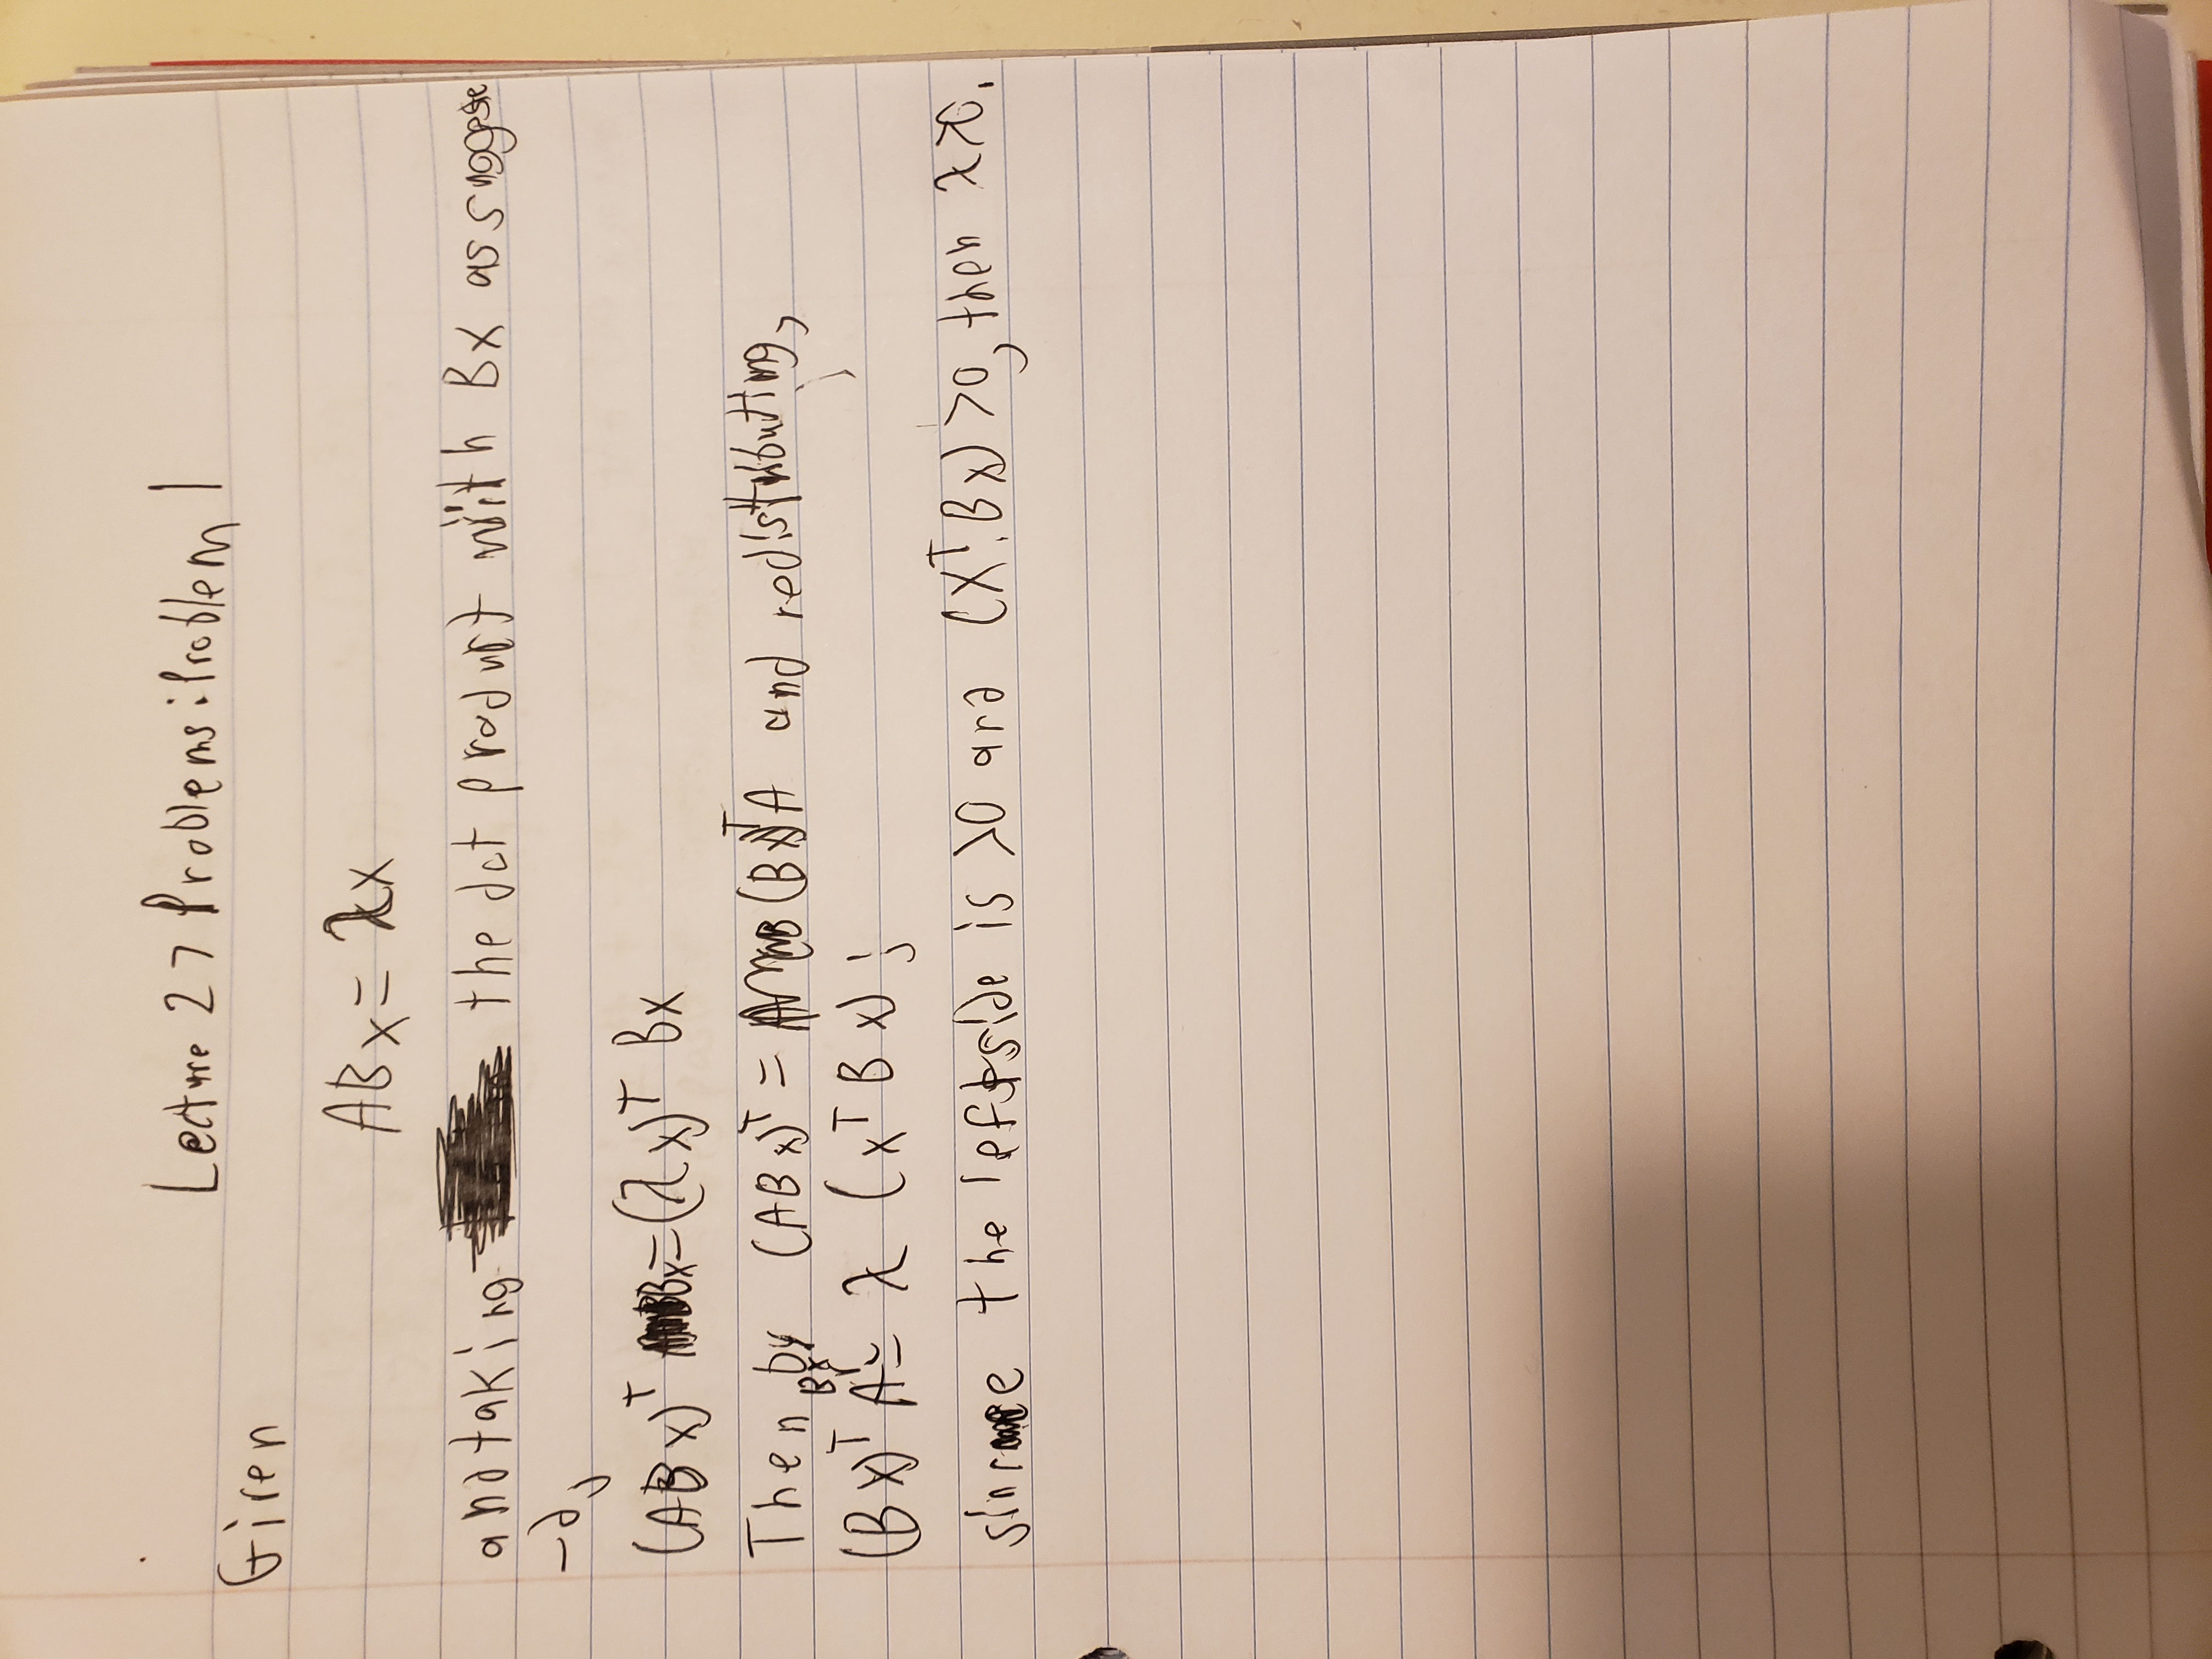 Lecture 27 Problems: Problem 1
Given
ABx = λx
and taking the dot product with Bx as suggeste
-d,
(ABx)ᵀ Bx = (λx)ᵀ Bx
Then by (ABx)ᵀ = (Bx)ᵀA and redistributing,
(Bx)ᵀ A Bx = λ (xᵀBx);
since the left side is >0 and (xᵀBx) >0, then λ>0.